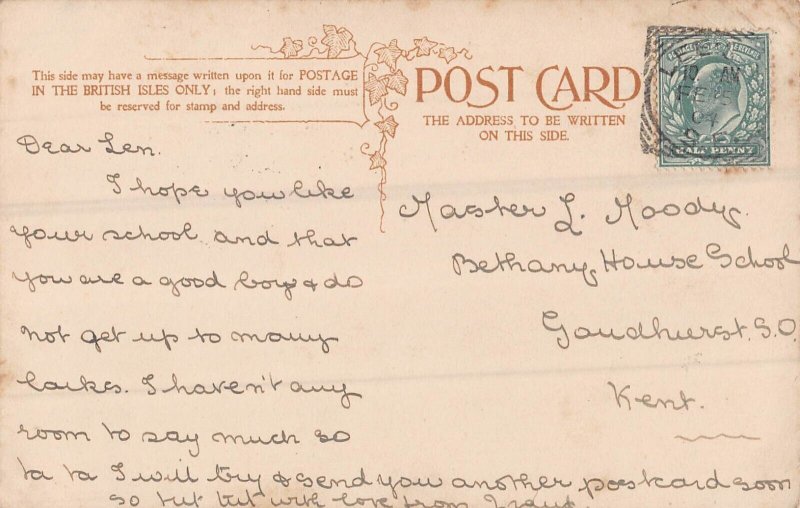 This side may have a message written upon it for POSTAGE
IN THE BRITISH ISLES ONLY; the right hand side must
be reserved for stamp and address.
POST CARD
THE ADDRESS TO BE WRITTEN
ON THIS SIDE.
HALF PENNY
Dear Len.
I hope you like
your school and that
you are a good boy & do
not get up to many
larkes. I haven't any
room to say much so
ta ta I will try & send you another postcard soon
so tut tut with love from
Master L. Moody.
Bethany House School
Goudhurst. S.O.
Kent.